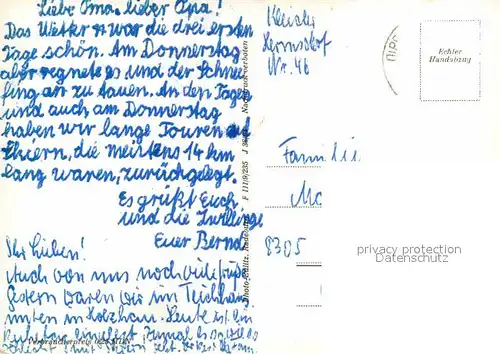 Liebe Oma, lieber Opa!
Das Wetter war die drei ersten
Tage schön. Am Donnerstag
aber regnete es und der Schnee
fing an zu tauen. An den Tagen
und auch am Donnerstag
haben wir lange Touren auf
Skiern, die meistens 14 km
lang waren, zurückgelegt.
Es grüßt Euch
und die Zwillinge
Euer Bernd
Ihr Lieben!
Auch von uns noch viele Grüße
gestern waren wir im
unten in Holzhau. Heute ist ein
Ruhetag eingelegt.
Verbraucherpreis 0,25 MDN
Photo-
F 111/9/235
Nachdruck verboten
Hermsdorf
Nr. 46
Echter
Handabzug
Famili
8305
privacy protection
Datenschutz